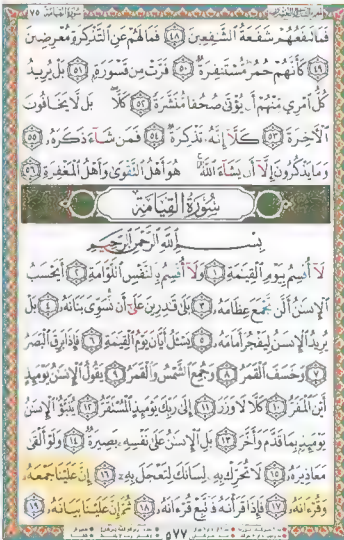 فَمَا تَنفَعُهُمْ شَفَٰعَةُ ٱلشَّٰفِعِينَ ٤٨ فَمَا لَهُمْ عَنِ ٱلتَّذْكِرَةِ مُعْرِضِينَ
٤٩ كَأَنَّهُمْ حُمُرٌ مُّسْتَنفِرَةٌ ٥٠ فَرَّتْ مِن قَسْوَرَةٍ ٥١ بَلْ يُرِيدُ
كُلُّ ٱمْرِئٍ مِّنْهُمْ أَن يُؤْتَىٰ صُحُفًا مُّنَشَّرَةً ٥٢ كَلَّا بَل لَّا يَخَافُونَ
ٱلْءَاخِرَةَ ٥٣ كَلَّا إِنَّهُۥ تَذْكِرَةٌ ٥٤ فَمَن شَآءَ ذَكَرَهُۥ ٥٥
وَمَا يَذْكُرُونَ إِلَّآ أَن يَشَآءَ ٱللَّهُ هُوَ أَهْلُ ٱلتَّقْوَىٰ وَأَهْلُ ٱلْمَغْفِرَةِ ٥٦
سُورَةُ القِيَامَة
بِسْمِ ٱللَّهِ ٱلرَّحْمَٰنِ ٱلرَّحِيمِ
لَآ أُقْسِمُ بِيَوْمِ ٱلْقِيَٰمَةِ ١ وَلَآ أُقْسِمُ بِٱلنَّفْسِ ٱللَّوَّامَةِ ٢ أَيَحْسَبُ
ٱلْإِنسَٰنُ أَلَّن نَّجْمَعَ عِظَامَهُۥ ٣ بَلَىٰ قَٰدِرِينَ عَلَىٰٓ أَن نُّسَوِّىَ بَنَانَهُۥ ٤ بَلْ
يُرِيدُ ٱلْإِنسَٰنُ لِيَفْجُرَ أَمَامَهُۥ ٥ يَسْـَٔلُ أَيَّانَ يَوْمُ ٱلْقِيَٰمَةِ ٦ فَإِذَا بَرِقَ ٱلْبَصَرُ
٧ وَخَسَفَ ٱلْقَمَرُ ٨ وَجُمِعَ ٱلشَّمْسُ وَٱلْقَمَرُ ٩ يَقُولُ ٱلْإِنسَٰنُ يَوْمَئِذٍ
أَيْنَ ٱلْمَفَرُّ ١٠ كَلَّا لَا وَزَرَ ١١ إِلَىٰ رَبِّكَ يَوْمَئِذٍ ٱلْمُسْتَقَرُّ ١٢ يُنَبَّؤُا۟ ٱلْإِنسَٰنُ
يَوْمَئِذٍۭ بِمَا قَدَّمَ وَأَخَّرَ ١٣ بَلِ ٱلْإِنسَٰنُ عَلَىٰ نَفْسِهِۦ بَصِيرَةٌ ١٤ وَلَوْ أَلْقَىٰ
مَعَاذِيرَهُۥ ١٥ لَا تُحَرِّكْ بِهِۦ لِسَانَكَ لِتَعْجَلَ بِهِۦٓ ١٦ إِنَّ عَلَيْنَا جَمْعَهُۥ
وَقُرْءَانَهُۥ ١٧ فَإِذَا قَرَأْنَٰهُ فَٱتَّبِعْ قُرْءَانَهُۥ ١٨ ثُمَّ إِنَّ عَلَيْنَا بَيَانَهُۥ ١٩
٥٧٧